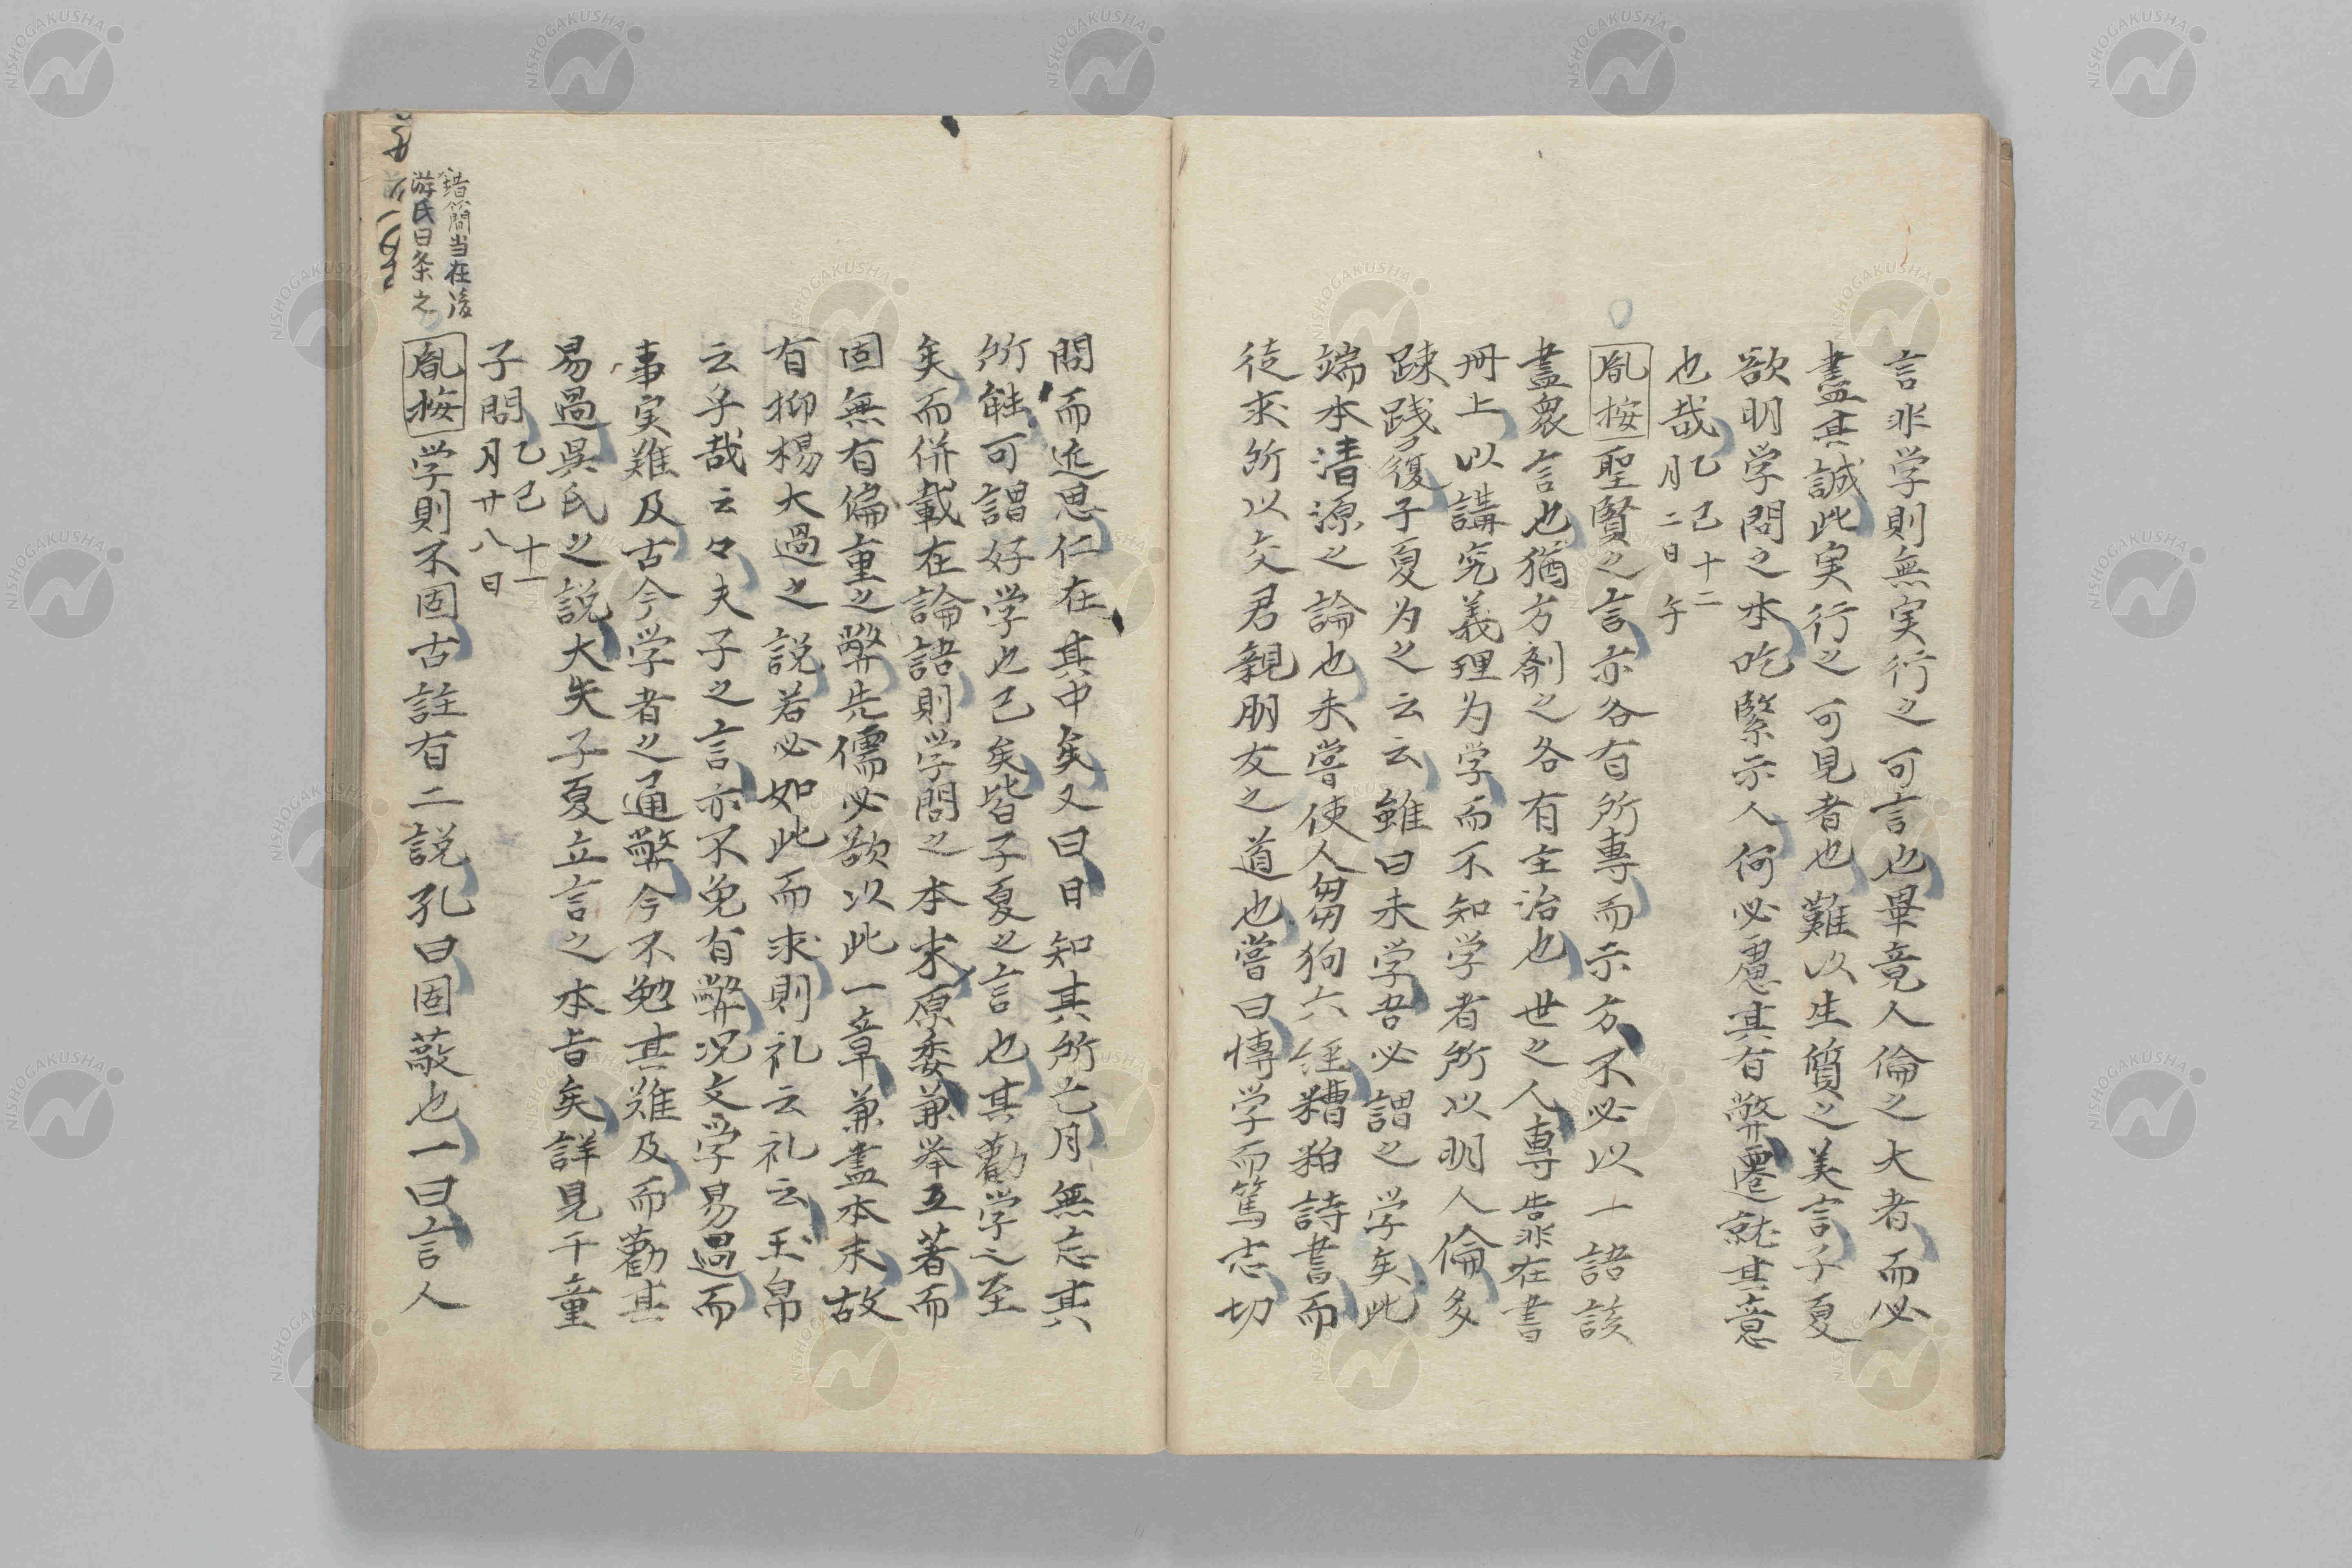 言非学則無実行之可言也畢竟人倫之大者而必
盡其誠此実行之可見者也難以生質之美言子夏
欲明学問之本吃緊示人何必慮其有弊遷就其意
也哉乙己十二
月二日午
胤按聖賢之言亦各有所專而示方不必以一語該
盡衆言也猶方剤之各有主治也世之人專靠在書
冊上以講究義理为学而不知学者所以明人倫多
踈践履子夏为之云云雖曰未学吾必謂之学矣此
端本清源之論也未嘗使人芻狗六経糟粕詩書而
徒求所以交君親朋友之道也嘗曰慱学而篤志切
問而近思仁在其中矣又曰日知其所亡月無忘其
所能可謂好学也已矣皆子夏之言也其勸学之至
矣而併載在論語則学問之本末原委兼挙互著而
固無有偏重之弊先儒必欲以此一章兼盡本末故
有抑揚大過之説若必如此而求則礼云礼云玉帛
云乎哉云々夫子之言亦不免有弊况文学易過而
事実難及古今学者之通弊今不勉其難及而勸其
易過吳氏之説大失子夏立言之本旨矣詳見千童
子問乙己十一
月廿八日
錯簡当在後
游氏曰条之
胤按学則不固古註有二説孔曰固蔽也一曰言人